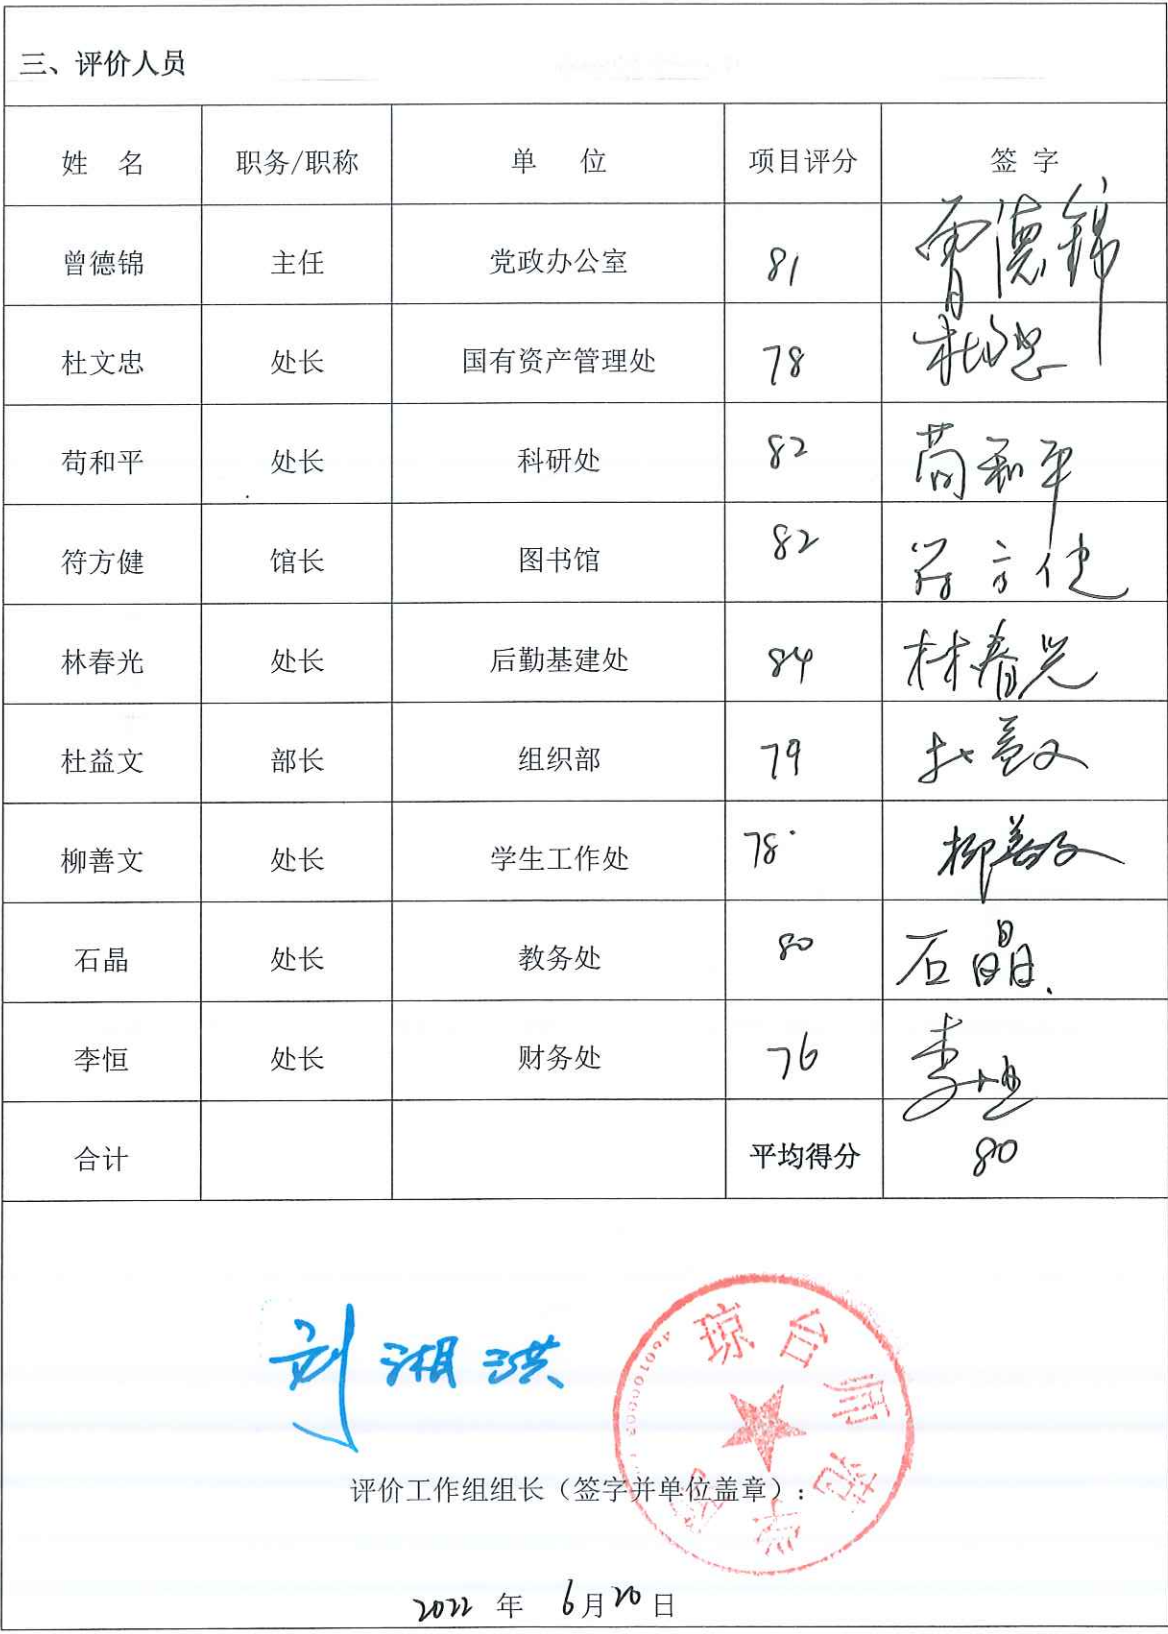 三、评价人员
姓 名 职务/职称 单 位 项目评分 签 字
曾德锦 主任 党政办公室 81 曾德锦
杜文忠 处长 国有资产管理处 78 杜文忠
苟和平 处长 科研处 82 苟和平
符方健 馆长 图书馆 82 符方健
林春光 处长 后勤基建处 84 林春光
杜益文 部长 组织部 79 杜益文
柳善文 处长 学生工作处 78 柳善文
石晶 处长 教务处 80 石晶
李恒 处长 财务处 76 李恒
合计 平均得分 80
刘湘洪
琼台师范学院
评价工作组组长（签字并单位盖章）：
2022 年 6月20日